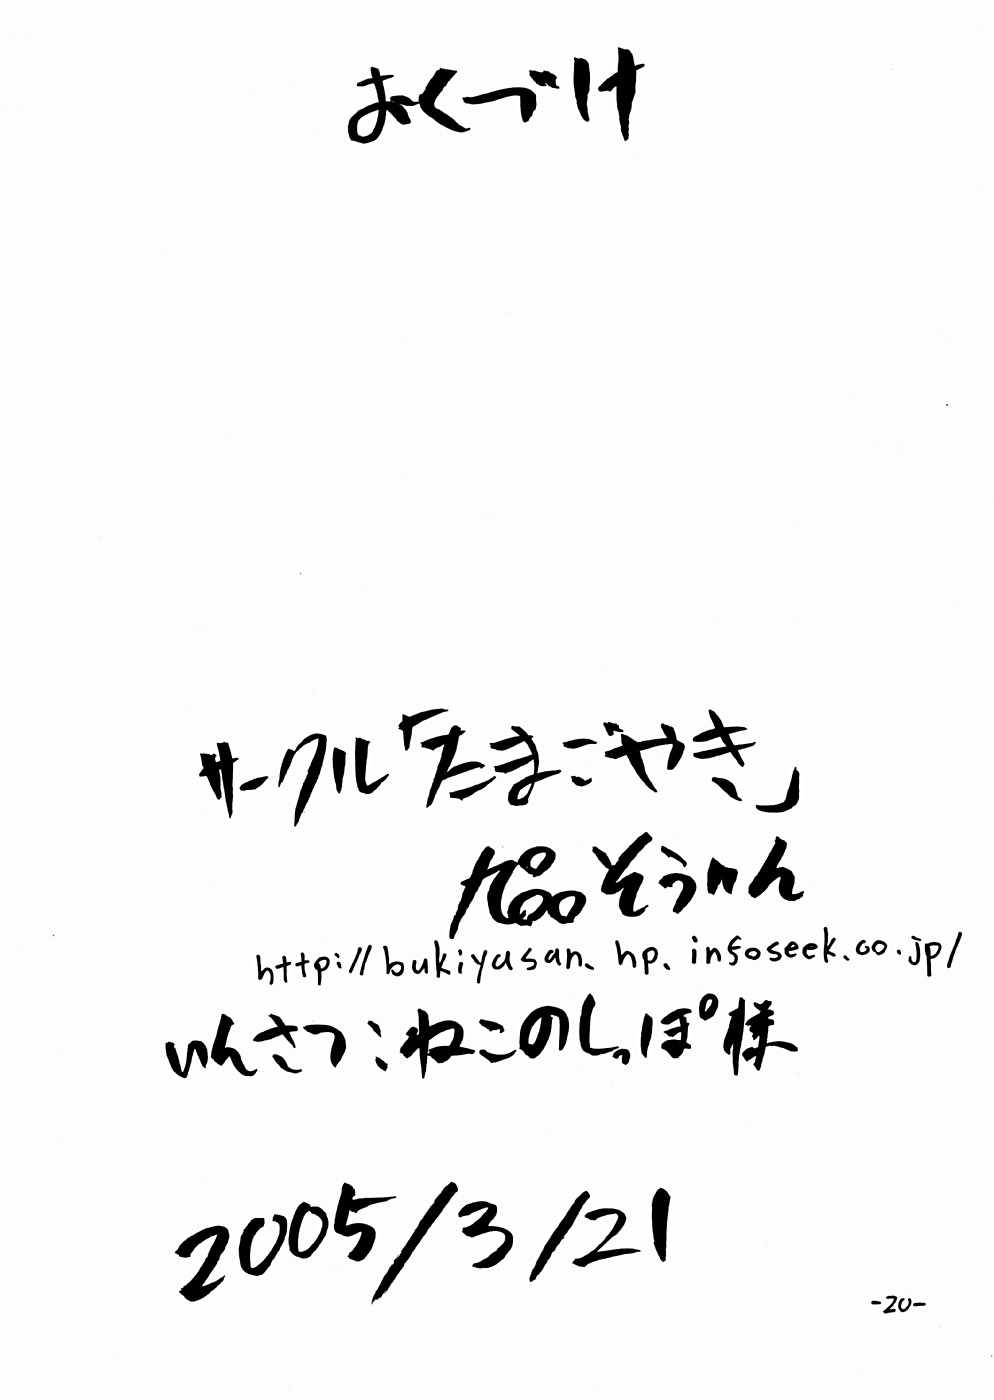 おくづけ
サークル「たまごやき」
そういん
http://bukiyasan.hp.infoseek.co.jp/
いんさつ:ねこのしっぽ様
2005/3/21
-20-